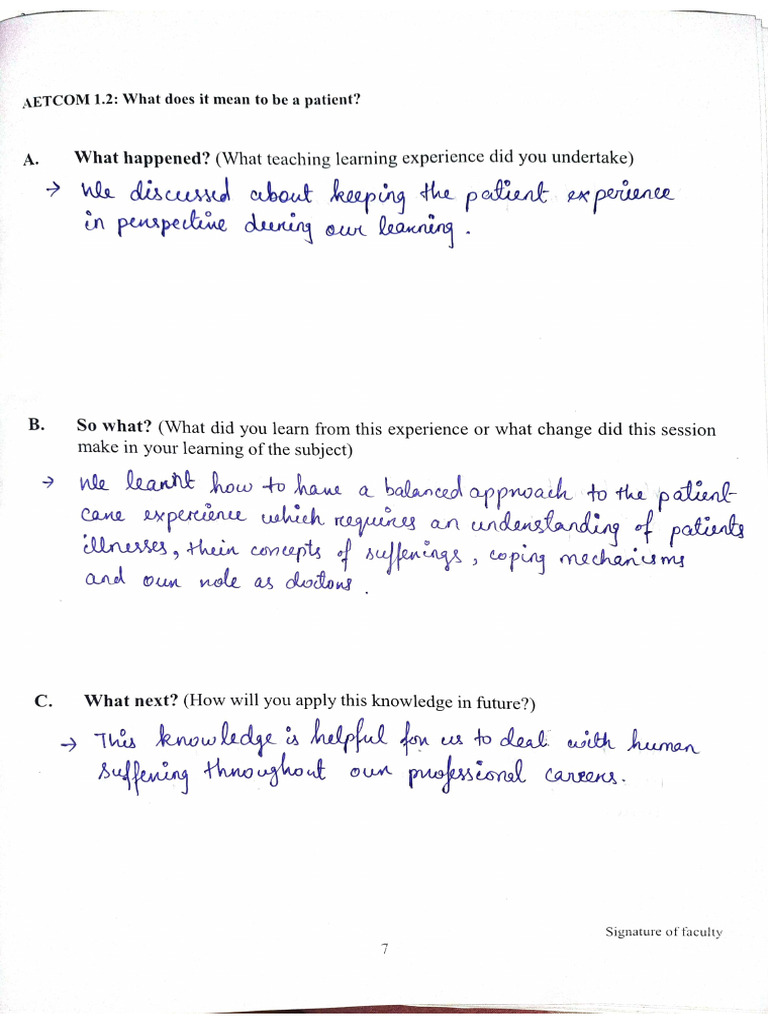 AETCOM 1.2: What does it mean to be a patient?
A. What happened? (What teaching learning experience did you undertake)
→ We discussed about keeping the patient experience
in perspective during our learning.
B. So what? (What did you learn from this experience or what change did this session
make in your learning of the subject)
→ We learnt how to have a balanced approach to the patient
care experience which requires an understanding of patients
illnesses, their concepts of sufferings, coping mechanisms
and our role as doctors.
C. What next? (How will you apply this knowledge in future?)
→ This knowledge is helpful for us to deal with human
suffering throughout our professional careers.
Signature of faculty
7